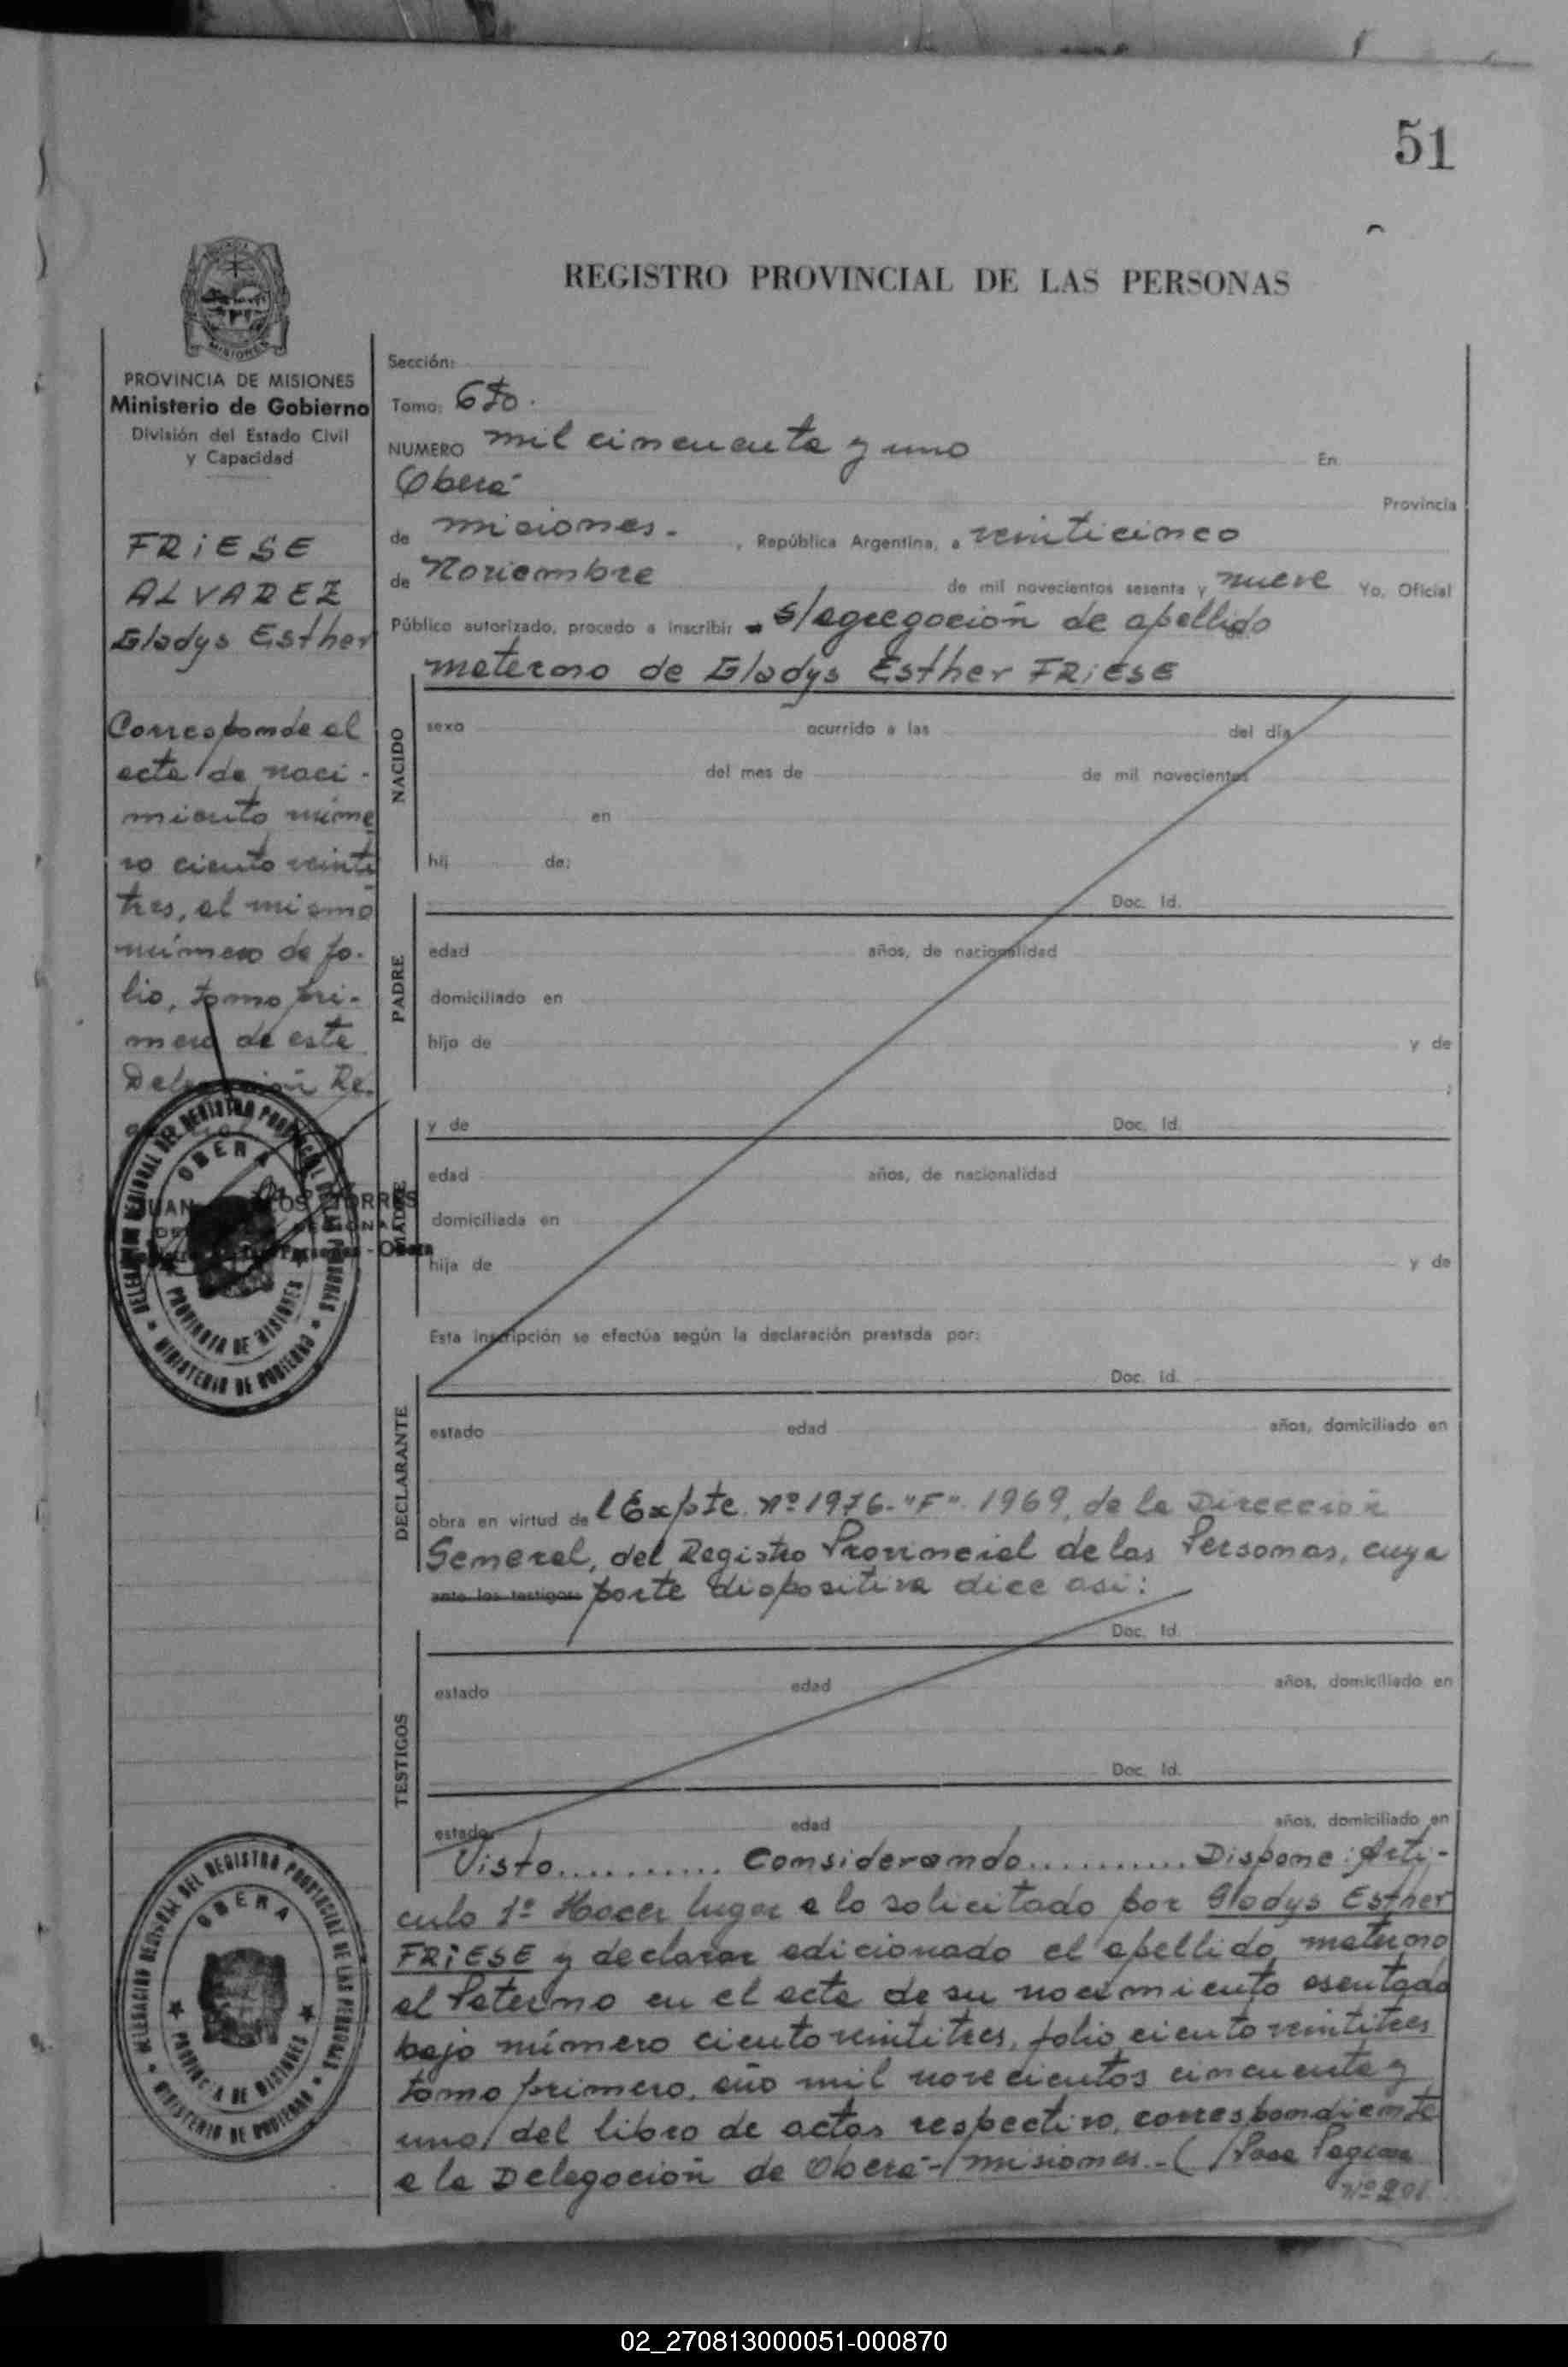 51
REGISTRO PROVINCIAL DE LAS PERSONAS
MISIONES
PROVINCIA DE MISIONES
Ministerio de Gobierno
División del Estado Civil
y Capacidad
FRiESE
ALVAREZ
Gladys Esther
Corresponde al
acta de naci-
miento núme
ro ciento veinti
tres, al mismo
número de fo-
lio, tomo pri-
mero de esta
Delegación Re.
DELEGACION REGIONAL DEL REGISTRO PROVINCIAL DE LAS PERSONAS
OBERA
PROVINCIA DE MISIONES
MINISTERIO DE GOBIERNO
JUAN CARLOS TORRES
Personas - Obera
DELEGACION REGIONAL DEL REGISTRO PROVINCIAL DE LAS PERSONAS
OBERA
PROVINCIA DE MISIONES
MINISTERIO DE GOBIERNO
Sección:
Tomo: 6to.
NUMERO mil cincuenta y uno En
Oberá Provincia
de misiones.- , República Argentina, a veinticinco
de Noviembre de mil novecientos sesenta y nueve Yo, Oficial
Público autorizado, procedo a inscribir s/agregación de apellido
materno de Gladys Esther FRiESE
NACIDO
sexo ocurrido a las del día
del mes de de mil novecientos
en
hij de:
Doc. Id.
PADRE
edad años, de nacionalidad
domiciliado en
hijo de y de
;
y de Doc. Id.
MADRE
edad años, de nacionalidad
domiciliada en
hija de y de
Esta inscripción se efectúa según la declaración prestada por:
Doc. Id.
DECLARANTE
estado edad años, domiciliado en
obra en virtud de l Expte. Nº 1976-"F"-1969, de la Dirección
General, del Registro Provincial de las Personas, cuya
ante los testigos: parte dispositiva dice asi:
Doc. Id.
TESTIGOS
estado edad años, domiciliado en
Doc. Id.
estado edad años, domiciliado en
Visto........... Considerando........... Dispone: Arti-
culo 1º Hacer lugar a lo solicitado por Gladys Esther
FRiESE y declarar adicionado el apellido materno
al Paterno en el acta de su nacimiento asentada
bajo número ciento veintitres, folio ciento veintitres
tomo primero, año mil novecientos cincuenta y
uno, del libro de actas respectivo, correspondiente
a la Delegación de Oberá-Misiones.-( Pasa Pagina
Nº 201
02_270813000051-000870